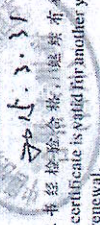 15.3.31
书经检验合格,继续有
certificate is valid for another y
renewal